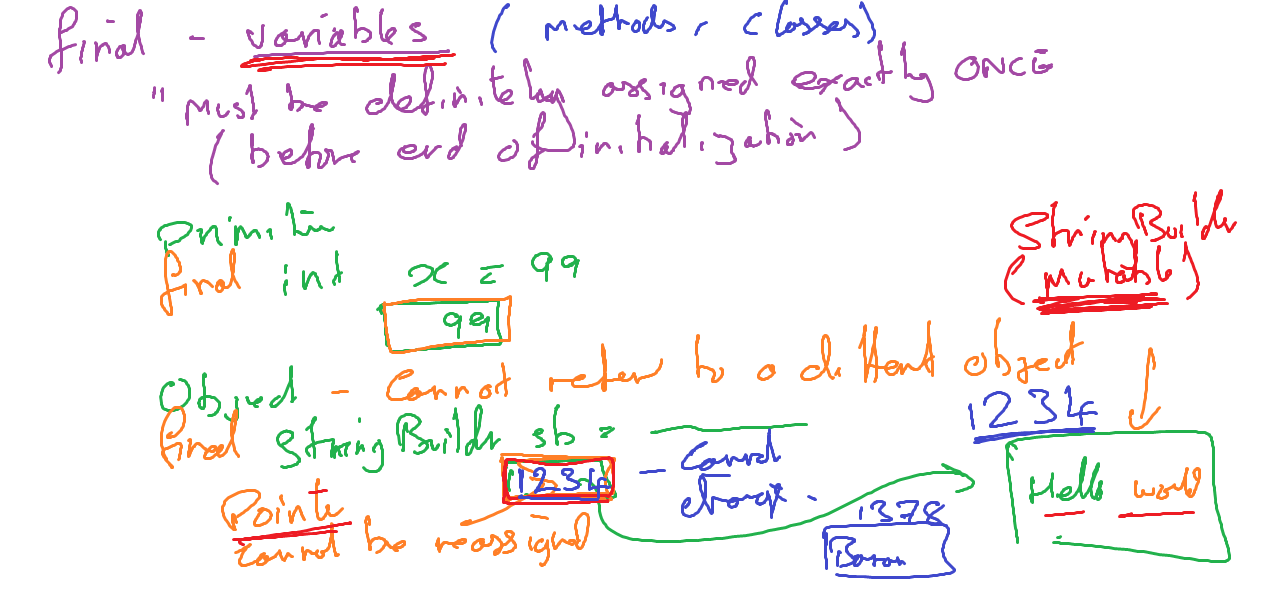 final - variables (methods, classes)
"Must be definitely assigned exactly ONCE
(before end of initialization)
primitive
final int x = 99
99
StringBuilder
(mutable)
Object - Cannot refer to a different object
final StringBuilder sb =
1234
1234 - Cannot
change.
Hello world
Pointer
cannot be reassigned
1378